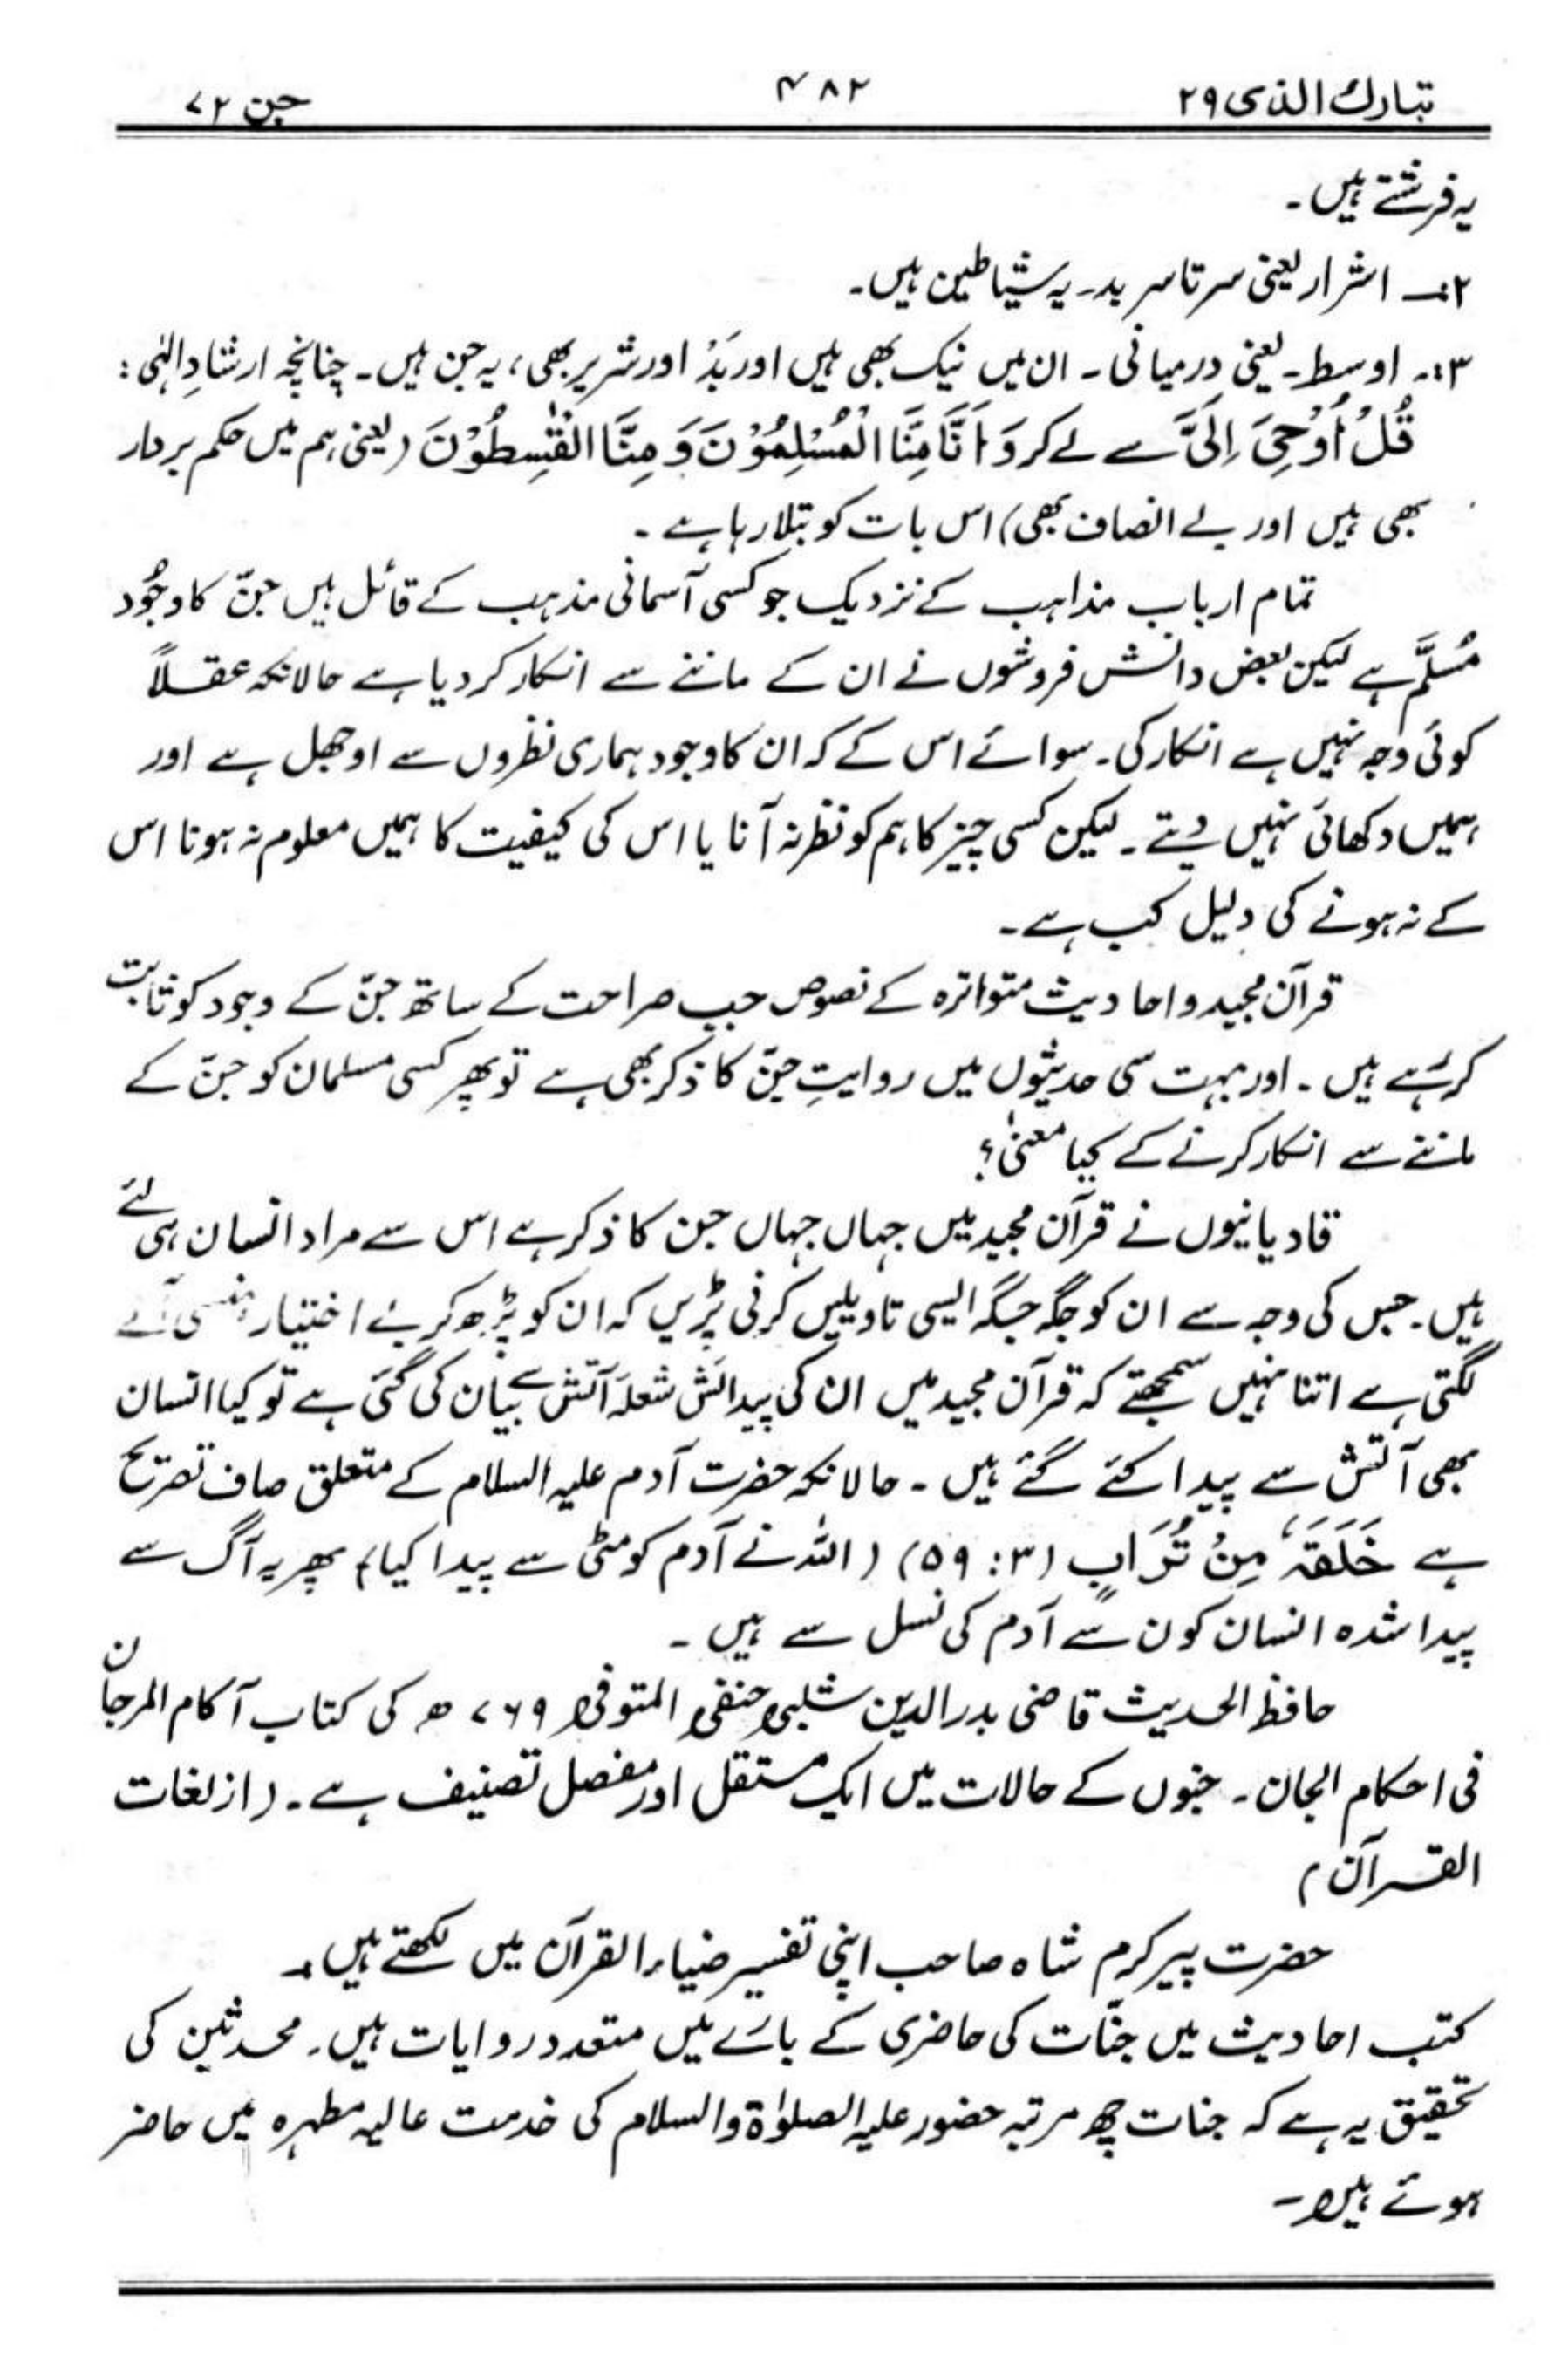 تبارك الذى ۲۹ ۴۸۲ جن ۷۲
یہ فرشتے ہیں۔
۲:۔ اشرار یعنی سرتاسر بد۔ یہ شیاطین ہیں۔
۳:۔ اوسط۔ یعنی درمیانی۔ ان میں نیک بھی ہیں اور بَدْ اور شریر بھی، یہ جن ہیں۔ چنانچہ ارشادِ الٰہی:
قُلْ اُوْحِیَ اِلَیَّ سے لے کر وَ اَنَّا مِنَّا الْمُسْلِمُوْنَ وَ مِنَّا الْقٰسِطُوْنَ (یعنی ہم میں حکم بردار
بھی ہیں اور بے انصاف بھی) اس بات کو بتلا رہا ہے۔
تمام ارباب مذاہب کے نزدیک جو کسی آسمانی مذہب کے قائل ہیں جنّ کا وجُود
مُسلَّم ہے لیکن بعض دانش فروشوں نے ان کے ماننے سے انکار کر دیا ہے حالانکہ عقلاً
کوئی وجہ نہیں ہے انکار کی۔ سوائے اس کے کہ ان کا وجود ہماری نظروں سے اوجھل ہے اور
ہمیں دکھائی نہیں دیتے۔ لیکن کسی چیز کا ہم کو نظر نہ آنا یا اس کی کیفیت کا ہمیں معلوم نہ ہونا اس
کے نہ ہونے کی دلیل کب ہے۔
قرآن مجید و احادیث متواترہ کے نصوص جب صراحت کے ساتھ جنّ کے وجود کو ثابت
کر رہے ہیں۔ اور بہت سی حدیثوں میں روایتِ جنّ کا ذکر بھی ہے تو پھر کسی مسلمان کو جنّ کے
ماننے سے انکار کرنے کے کیا معنیٰ؟
قادیانیوں نے قرآن مجید میں جہاں جہاں جن کا ذکر ہے اس سے مراد انسان ہی لئے
ہیں۔ جس کی وجہ سے ان کو جگہ جگہ ایسی تاویلیں کرنی پڑیں کہ ان کو پڑھ کر بے اختیار ہنسی آنے
لگتی ہے اتنا نہیں سمجھتے کہ قرآن مجید میں ان کی پیدائش شعلۂ آتش سے بیان کی گئی ہے تو کیا انسان
بھی آتش سے پیدا کئے گئے ہیں۔ حالانکہ حضرت آدم علیہ السلام کے متعلق صاف تصریح
ہے خَلَقَہٗ مِنْ تُرَابٍ (۳: ۵۹) (اللہ نے آدم کو مٹی سے پیدا کیا) پھر یہ آگ سے
پیدا شدہ انسان کون سے آدم کی نسل سے ہیں۔
حافظ الحدیث قاضی بدر الدین شبلی حنفی المتوفی ۷۶۹ ھ کی کتاب آکام المرجان
فی احکام الجان۔ جنوں کے حالات میں ایک مستقل اور مفصل تصنیف ہے۔ (از لغات
القرآن)
حضرت پیر کرم شاہ صاحب اپنی تفسیر ضیاء القرآن میں لکھتے ہیں:۔
کتب احادیث میں جنّات کی حاضری کے بارے میں متعدد روایات ہیں۔ محدثین کی
تحقیق یہ ہے کہ جنات چھ مرتبہ حضور علیہ الصلوٰۃ والسلام کی خدمت عالیہ مطہرہ میں حاضر
ہوئے ہیں۔